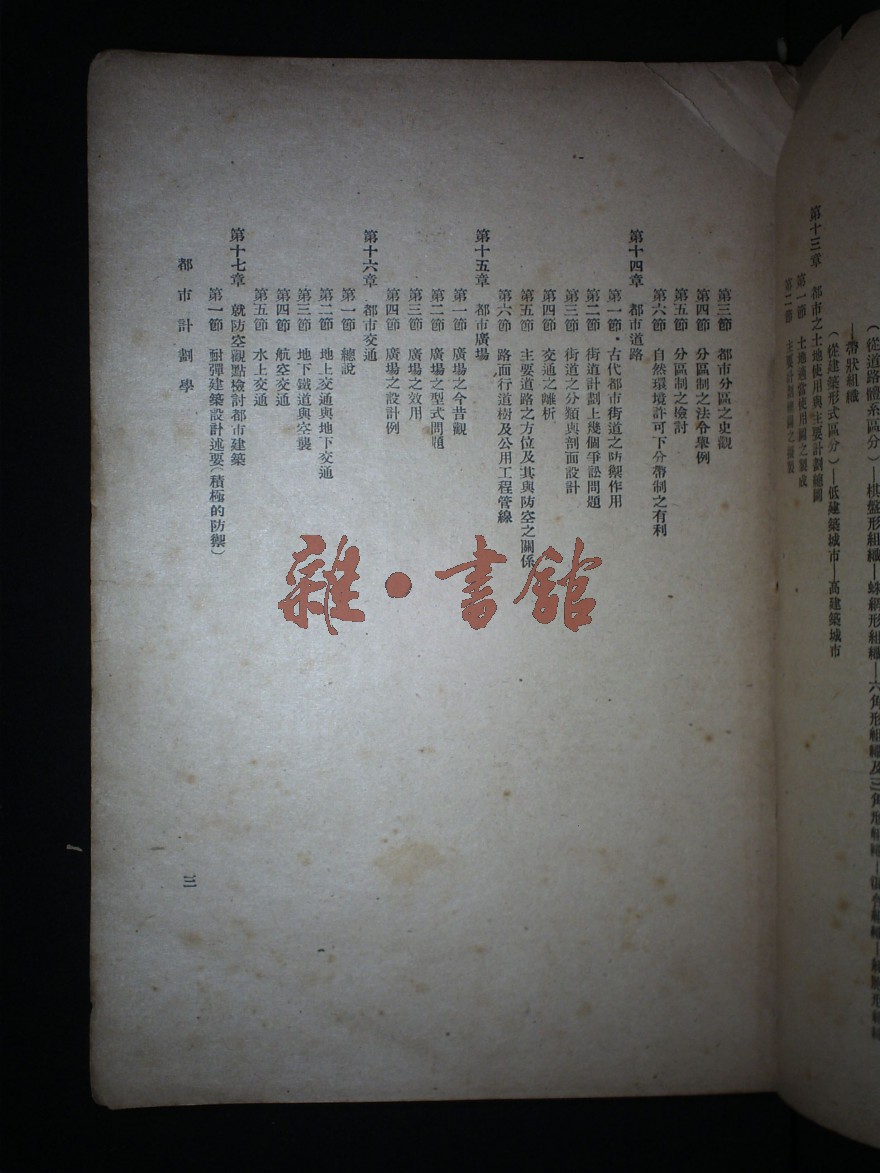 (從道路體系區分)—棋盤形組織—蛛網形組織—六角形組織及三角形組織
—帶狀組織
(從建築形式區分)—低建築城市—高建築城市
第十三章 都市之土地使用與主要計劃總圖
第一節 土地適當使用圖之製成
第二節 主要計劃總圖之擬製
第三節 都市分區之史觀
第四節 分區制之法令舉例
第五節 分區制之檢討
第六節 自然環境許可下分帶制之有利
第十四章 都市道路
第一節・古代都市街道之防禦作用
第二節 街道計劃上幾個爭訟問題
第三節 街道之分類與剖面設計
第四節 交通之離析
第五節 主要道路之方位及其與防空之關係
第六節 路面行道樹及公用工程管線
第十五章 都市廣場
第一節 廣場之今昔觀
第二節 廣場之型式問題
第三節 廣場之效用
第四節 廣場之設計例
第十六章 都市交通
第一節 總說
第二節 地上交通與地下交通
第三節 地下鐵道與空襲
第四節 航空交通
第五節 水上交通
第十七章 就防空觀點檢討都市建築
第一節 耐彈建築設計述要(積極的防禦)
都市計劃學
三
雜・書館